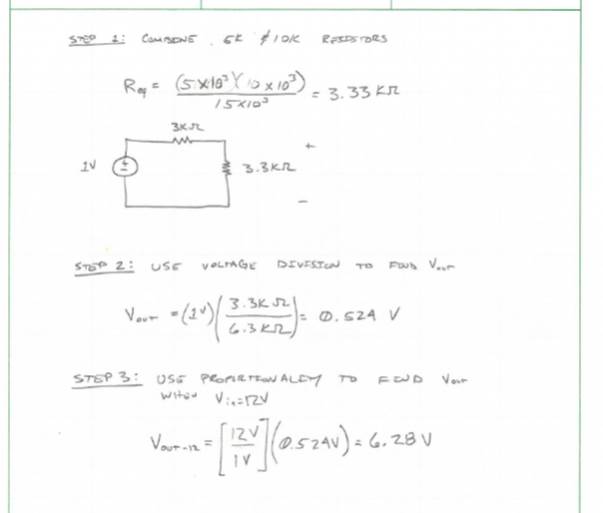 STEP 1: COMBINE 5K & 10K RESISTORS
Req = (5×10³)(10×10³) / 15×10³ = 3.33 KΩ
3KΩ
+
1V
3.3KΩ
-
STEP 2: USE VOLTAGE DIVISION TO FIND Vout
Vout = (1V)(3.3KΩ / 6.3KΩ) = 0.524 V
STEP 3: USE PROPORTIONALITY TO FIND Vout
WHEN Vin=12V
Vout-12 = [12V / 1V](0.524V) = 6.28V